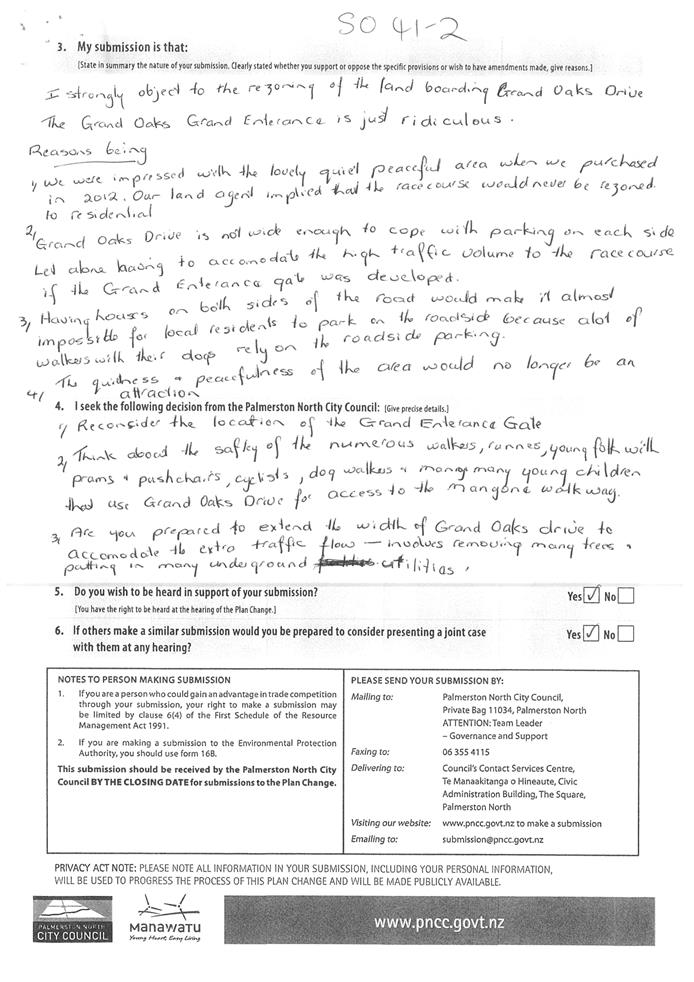 SO 41-2
3. My submission is that:
[State in summary the nature of your submission. Clearly stated whether you support or oppose the specific provisions or wish to have amendments made, give reasons.]
I strongly object to the rezoning of the land boarding Grand Oaks Drive
The Grand Oaks Grand Enterance is just ridiculous.
Reasons being
1) We were impressed with the lovely quiet peaceful area when we purchased
in 2012. Our land agent implied that the racecourse would never be rezoned
to residential
2) Grand Oaks Drive is not wide enough to cope with parking on each side
Let alone having to accomodate the high traffic volume to the racecourse
if the Grand Enterance gate was developed.
3) Having houses on both sides of the road would make it almost
impossible for local residents to park on the roadside because alot of
walkers with their dogs rely on the roadside parking.
4) The quitness & peacefulness of the area would no longer be an
attraction
4. I seek the following decision from the Palmerston North City Council: [Give precise details.]
1) Reconsider the location of the Grand Enterance Gate
2) Think about the safley of the numerous walkers, runnes, young folk with
prams & pushchairs, cyclists, dog walkers & many young children
that use Grand Oaks Drive for access to the mangone walkway.
3) Are you prepared to extend the width of Grand Oaks drive to
accomodate the extra traffic flow — involves removing many trees &
putting in many underground utilities.
5. Do you wish to be heard in support of your submission? Yes ✓ No
[You have the right to be heard at the hearing of the Plan Change.]
6. If others make a similar submission would you be prepared to consider presenting a joint case Yes ✓ No
with them at any hearing?
NOTES TO PERSON MAKING SUBMISSION
1. If you are a person who could gain an advantage in trade competition
through your submission, your right to make a submission may
be limited by clause 6(4) of the First Schedule of the Resource
Management Act 1991.
2. If you are making a submission to the Environmental Protection
Authority, you should use form 16B.
This submission should be received by the Palmerston North City
Council BY THE CLOSING DATE for submissions to the Plan Change.
PLEASE SEND YOUR SUBMISSION BY:
Mailing to: Palmerston North City Council,
Private Bag 11034, Palmerston North
ATTENTION: Team Leader
– Governance and Support
Faxing to: 06 355 4115
Delivering to: Council's Contact Services Centre,
Te Manaakitanga o Hineaute, Civic
Administration Building, The Square,
Palmerston North
Visiting our website: www.pncc.govt.nz to make a submission
Emailing to: submission@pncc.govt.nz
PRIVACY ACT NOTE: PLEASE NOTE ALL INFORMATION IN YOUR SUBMISSION, INCLUDING YOUR PERSONAL INFORMATION,
WILL BE USED TO PROGRESS THE PROCESS OF THIS PLAN CHANGE AND WILL BE MADE PUBLICLY AVAILABLE.
PALMERSTON NORTH
CITY COUNCIL
MANAWATU
Young Heart, Easy Living
www.pncc.govt.nz